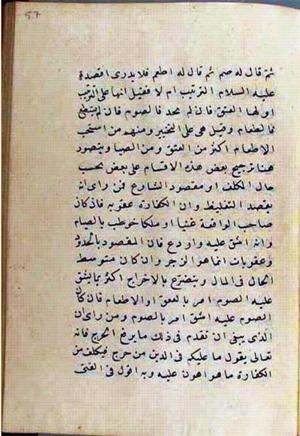 ٥٧
ثم قال له صم ثم قال له اطعم فلا يدرى اقصد
عليه السلام الترتيب ام لا فقيل انها على الترتيب
اولها العتق فان لم يجد فالصوم فان لم يستطع
فالطعام وقيل هى على التخيير ومنهم من استحب
الاطعام اكثر من العتق ومن الصيام ويتصور
هنا ترجيح بعض هذه الاقسام على بعض بحسب
حال المكلف او مقصود الشارع فمن رأى انه
يقصد التغليظ وان الكفارة عقوبة فاذا كان
صاحب الواقعة غنيا او ملكا خوطب بالصيام
فانه اشق عليه واردع فان المقصود بالحدود
والعقوبات انما هو الزجر وان كان متوسط
الحال فى المال ويتضرر بالاخراج اكثر مما يشق
عليه الصوم امر بالعتق او الاطعام فان كان
الصوم عليه اشق امر بالصوم ومن رأى ان
الذى ينبغى ان تقدم فى ذلك ما يرفع الحرج فانه
تعالى يقول ما عليكم فى الدين من حرج فيكلف من
الكفارة ما هو اهون عليه وبه اقول فى الفتى